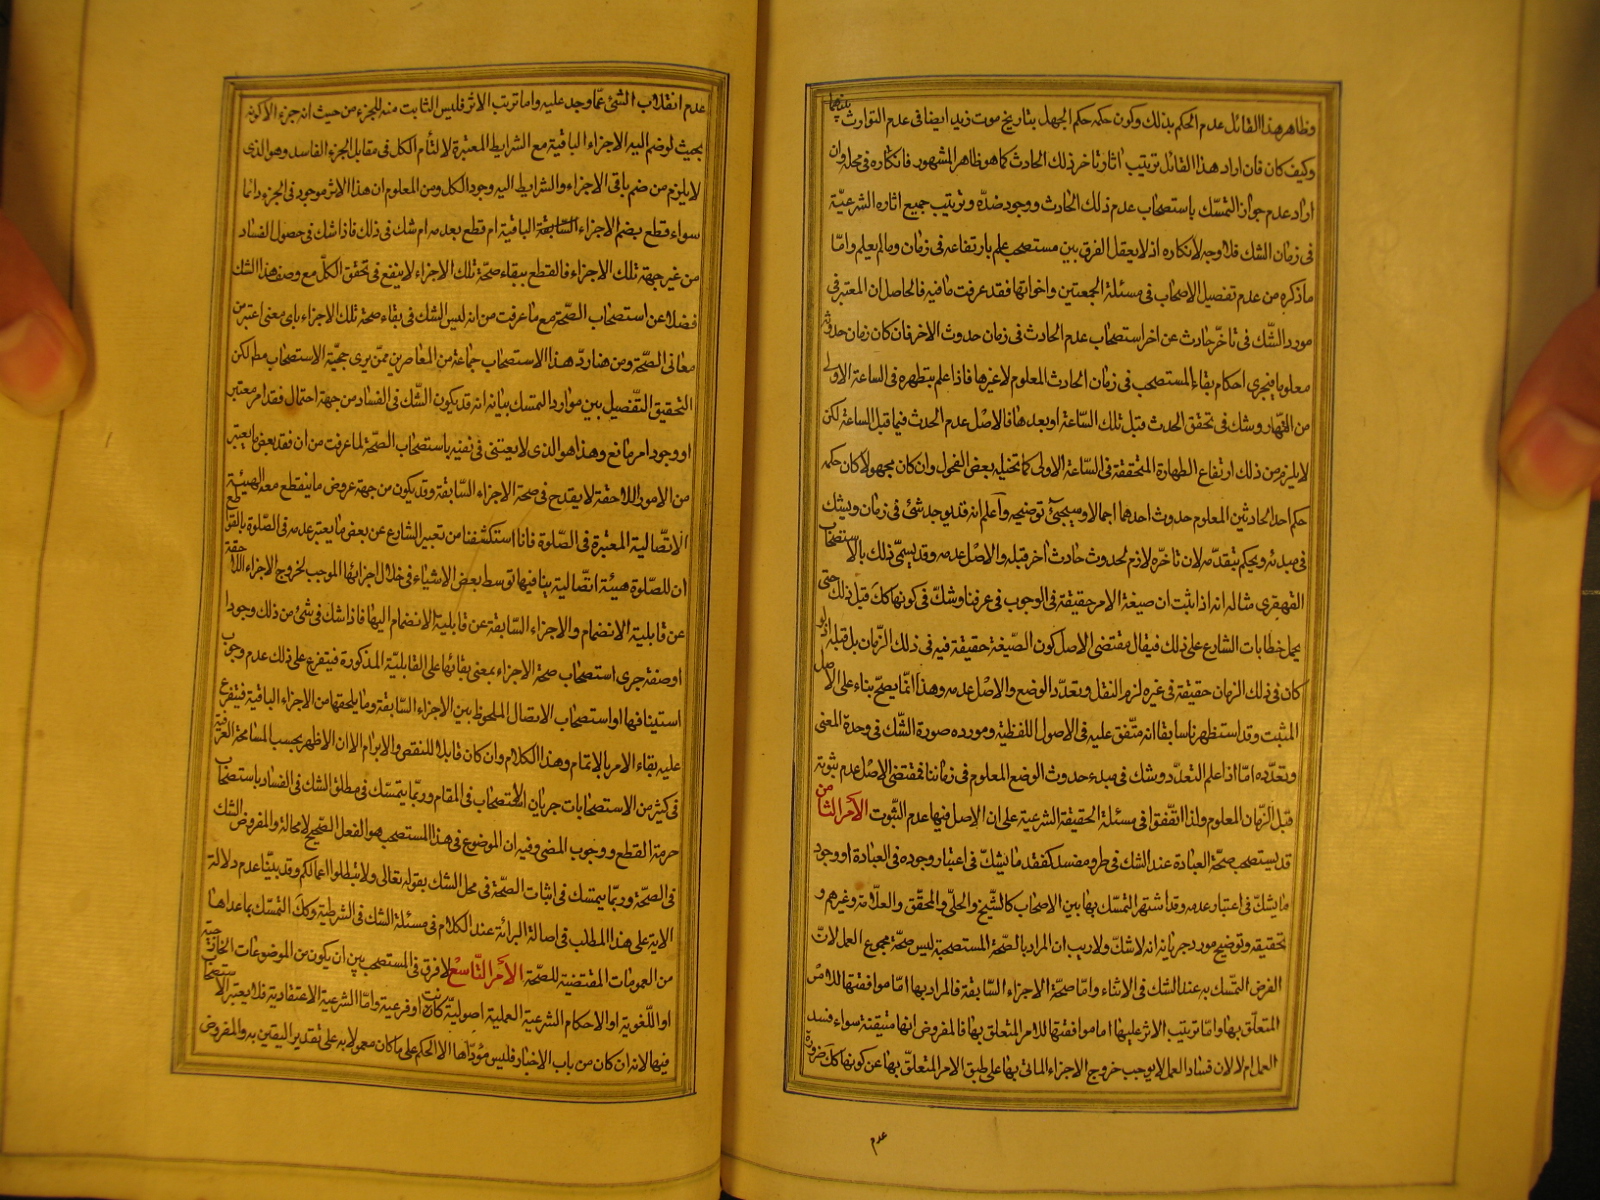 وظاهر هذا القائل عدم الحكم بذلك وكون حكمه حكم الجهل بتاريخ موت زيد ايضا فى عدم التوارث بينهما
وكيف كان فان اراد هذا القائل ترتيب اثار تاخر ذلك الحادث كما هو ظاهر المشهور فانكاره فى محله وان
اراد عدم جواز التمسّك باستصحاب عدم ذلك الحادث ووجود ضدّه وترتيب جميع اثاره الشرعيّة
فى زمان الشك فلا وجه لانكاره اذ لا يعقل الفرق بين مستصحب علم بارتفاعه فى زمان وما لم يعلم وامّا
ما ذكره من عدم تفصيل الاصحاب فى مسئلة الجمعتين واخواتها فقد عرفت ما فيه فالحاصل ان المعتبر فى
مورد الشّك فى تاخّر حادث عن اخر استصحاب عدم الحادث فى زمان حدوث الاخر فان كان زمان حدوثه
معلوما فيجرى احكام بقاء المستصحب فى زمان الحادث المعلوم لا غيرها فاذا علم بتطهره فى الساعة الاولى
من النّهار وشك فى تحقق الحدث قبل تلك السّاعة او بعدها فالاصل عدم الحدث فيما قبل الساعة لكن
لا يلزم من ذلك ارتفاع الطهارة المتحققة فى السّاعة الاولى كما تخيله بعض الفحول وان كان مجهولا كان حكمه
حكم احد الحادثين المعلوم حدوث احدهما اجمالا وسيجئ توضيحه واعلم انه قد يوجد شئ فى زمان ويشك
فى مبدئه ويحكم بتقدّمه لان تاخّره لازم لحدوث حادث اخر قبله والاصل عدمه وقد يسمّى ذلك بالاستصحاب
القهقرى مثاله انه اذا ثبت ان صيغة الامر حقيقة فى الوجوب فى عرفنا وشكّ فى كونها كك قبل ذلك حتى
يحمل خطابات الشارع على ذلك فيقال مقتضى الاصل كون الصّيغة حقيقة فيه فى ذلك الزّمان بل قبله اذ لو
كان فى ذلك الزمان حقيقة فى غيره لزم النقل وتعدّد الوضع والاصل عدمه وهذا انّما يصحّ بناء على الاصل
المثبت وقد استظهرنا سابقا انه متّفق عليه فى الاصول اللفظية ومورده صورة الشّك فى وحدة المعنى
وتعدّده امّا اذا علم التعدّد وشك فى مبدء حدوث الوضع المعلوم فى زماننا فمقتضى الاصل عدم ثبوته
قبل الزّمان المعلوم ولذا اتّفقوا فى مسئلة الحقيقة الشرعية على ان الاصل فيها عدم الثّبوت الأمر الثامن
قد يستصحب صحّة العبادة عند الشك فى طرو مفسد كفقد ما يشكّ فى اعتبار وجوده فى العبادة او وجود
ما يشكّ فى اعتبار عدمه وقد اشتهر التمسّك بها بين الاصحاب كالشّيخ والحلّى والمحقّق والعلّامة وغيرهم و
تحقيقه وتوضيح مورد جريانه انه لا شكّ ولا ريب ان المراد بالصّحة المستصحبة ليس صحّة مجموع العمل لانّ
الفرض التمسك به عند الشك فى الاثناء وامّا صحّة الاجزاء السّابقة فالمراد بها امّا موافقتها للامر
المتعلّق بها وامّا ترتيب الاثر عليها اما موافقتها للامر المتعلق بها فالمفروض انها متيقنة سواء فسد
العمل ام لا لان فساد العمل لا يوجب خروج الاجزاء الماتى بها على طبق الامر المتعلّق بها عن كونها كك ضرورة
عدم
عدم انقلاب الشئ عمّا وجد عليه واما ترتب الاثر فليس الثابت منه للجزء من حيث انه جزء الا كونه
بحيث لو ضم اليه الاجزاء الباقية مع الشرايط المعتبرة لالتأم الكل فى مقابل الجزء الفاسد وهو الذى
لا يلزم من ضم باقى الاجزاء والشرايط اليه وجود الكل ومن المعلوم ان هذا الاثر موجود فى الجزء دائما
سواء قطع بضم الاجزاء السّابقة الباقية ام قطع بعدمه ام شك فى ذلك فاذا شك فى حصول الفساد
من غير جهة تلك الاجزاء فالقطع ببقاء صحّة تلك الاجزاء لا ينفع فى تحقق الكلّ مع وصف هذا الشك
فضلا عن استصحاب الصّحة مع ما عرفت من انه ليس الشك فى بقاء صحة تلك الاجزاء باى معنى اعتبر من
معانى الصّحة ومن هنا ردّ هذا الاستصحاب جماعة من المعاصرين ممّن يرى حجيّة الاستصحاب مط لكن
التحقيق التّفصيل بين موارد التمسك بيانه انه قد يكون الشّك فى الفساد من جهة احتمال فقد امر معتبر
او وجود امر مانع وهذا هو الذى لا يعتنى فى نفيه باستصحاب الصّحة لما عرفت من ان فقد بعض ما يعتبر
من الامور اللاحقة لا يقدح فى صحة الاجزاء السّابقة وقد يكون من جهة عروض ما ينقطع معه الهيئة
الاتّصالية المعتبرة فى الصّلوة فانا استكشفنا من تعبير الشارع عن بعض ما يعتبر عدمه فى الصّلوة بالقواطع
ان للصّلوة هيئة اتصالية ينافيها توسط بعض الاشياء فى خلال اجزائها الموجب لخروج الاجزاء اللاحقة
عن قابلية الانضمام والاجزاء السّابقة عن قابلية الانضمام اليها فاذا شك فى شئ من ذلك وجودا
او صفة جرى استصحاب صحة الاجزاء بمعنى بقائها على القابليّة المذكورة فيتفرع على ذلك عدم وجوب
استينافها او استصحاب الاتصال الملحوظ بين الاجزاء السّابقة وما يلحقها من الاجزاء الباقية فيتفرع
عليه بقاء الامر بالاتمام وهذا الكلام وان كان قابلا للنقض والابرام الا ان الاظهر بحسب المسامحة العرفية
فى كثير من الاستصحابات جريان الاستصحاب فى المقام وربّما يتمسّك فى مطلق الشك فى الفساد باستصحاب
حرمة القطع ووجوب المضى وفيه ان الموضوع فى هذا المستصحب هو الفعل الصّحيح لا محالة والمفروض الشك
فى الصّحة وربّما يتمسك فى اثبات الصّحة فى محل الشك بقوله تعالى ولا تبطلوا اعمالكم وقد بيّنا عدم دلالة
الاية على هذا المطلب فى اصالة البرائة عند الكلام فى مسئلة الشك فى الشرطية وكك التمسّك بما عداها
من العمومات المقتضية للصّحة الأمر التّاسع لا فرق فى المستصحب بين ان يكون من الموضوعات الخارجية
او اللّغوية او الاحكام الشرعية العملية اصوليّة كانت او فرعية وامّا الشرعية الاعتقادية فلا يعتبر الاستصحاب
فيها لانه ان كان من باب الاخبار فليس مؤدّاها الا الحكم على ما كان معمولا به على تقدير اليقين به والمفروض